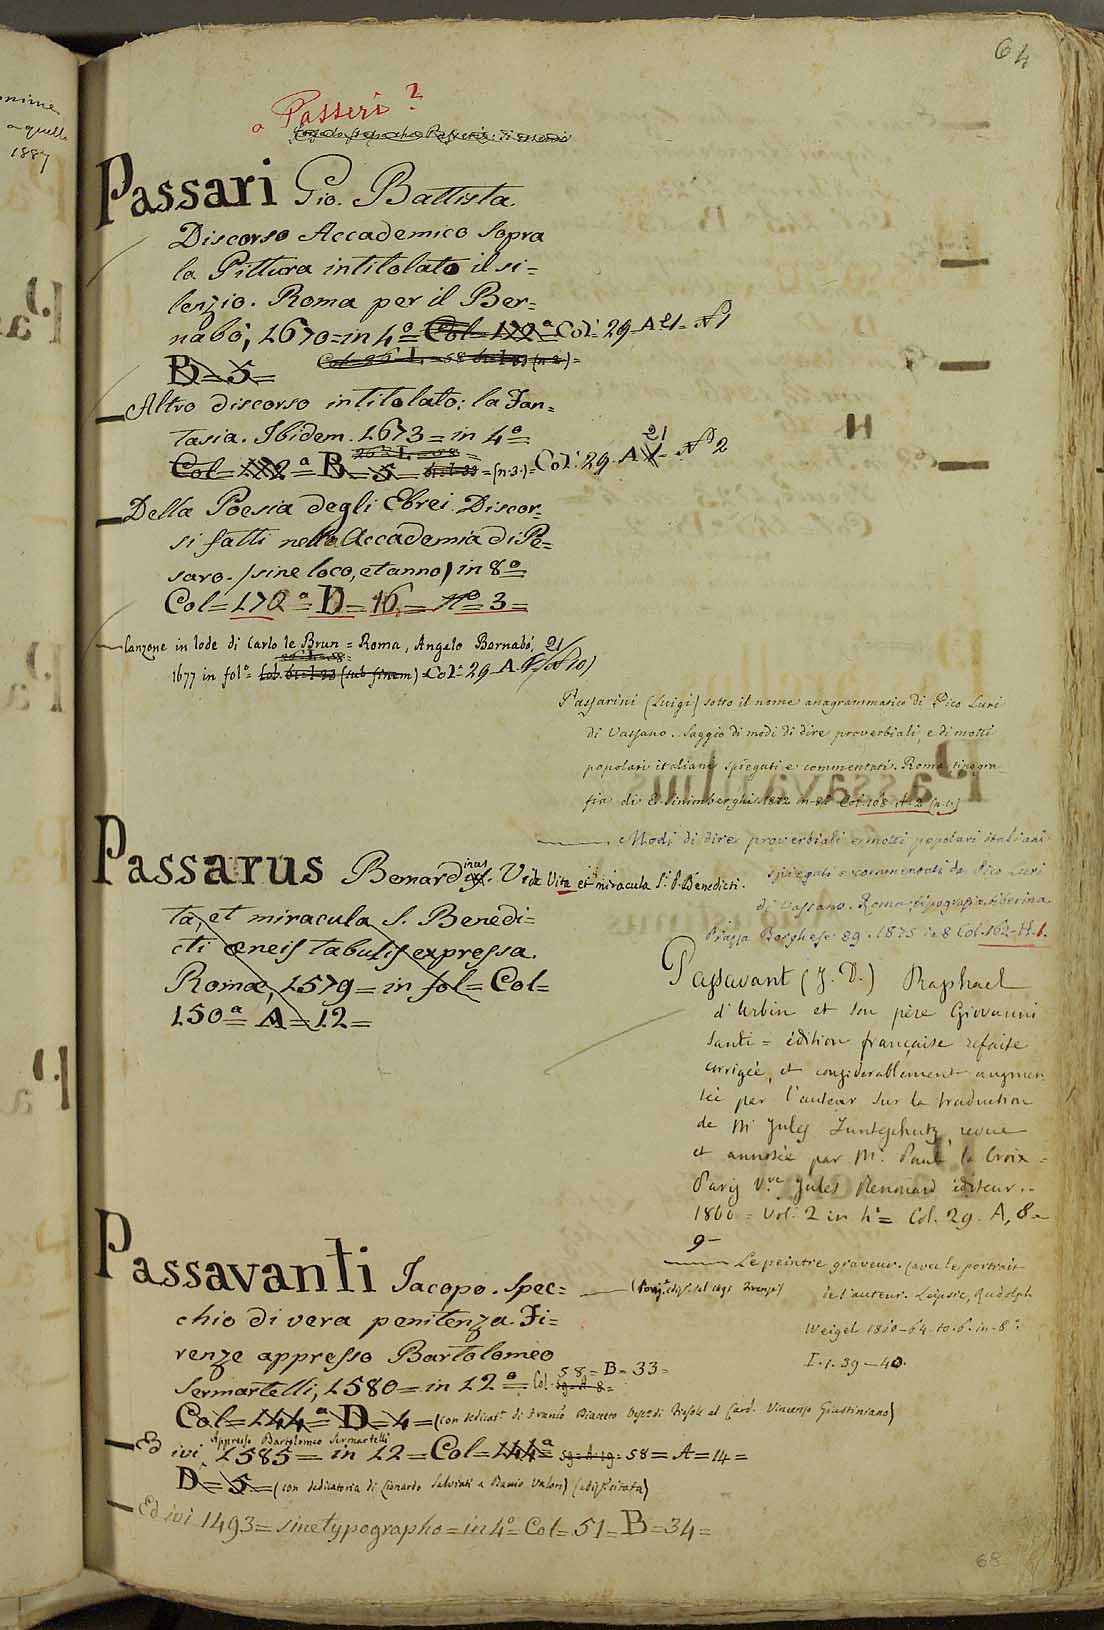 onime
a quelle
1887
64
o Passeri ?
Passari Gio. Battista.
Discorso Accademico sopra
la Pittura intitolato il si=
lenzio. Roma per il Ber=
nabò, 1670=in 4º = Col= 122ª Col: 29-A 21- Nº 1
B=5=
Altro discorso intitolato: la Fan=
tasia. Ibidem. 1673=in 4º=
Col=122ª B=5= =(n.3.)= Col: 29. A 21- Nº 2
Della Poesia degli Ebrei. Discor=
si fatti nella Accademia di Pe=
saro. (sine loco, et anno) in 8º=
Col=170ª=D=16=Nº=3=
Canzone in lode di Carlo le Brun = Roma, Angelo Bernabò, 21
1677 in folº= (sub finem) Col: 29 A
Passarini (Luigi) sotto il nome anagrammatico di Pico Luri
di Vassano. Saggio di modi di dire proverbiali, e di motti
popolari italiani spiegati e commentati. Roma tipogra-
fia di E. Sinimberghi 1872 in 8º Col. 168 A-2
Modi di dire proverbiali e motti popolari italiani
spiegati e commentati da Pico Luri
di Vassano. Roma tipografia Tiberina
Piazza Borghese 89. 1875 in 8 Col. 162-H.1.
Passarus Bernardinus. Vide Vita et miracula S. P. Benedicti.
ta, et miracula S. Benedi=
cti æneis tabulis expressa.
Romæ, 1579=in fol= Col=
150ª=A=12=
Passavant (J. D.) Raphael
d'Urbin et son père Giovanni
Santi = édition française refaite
corrigée, et considérablement augmen
tée par l'auteur sur la traduction
de Mr Jules Lunteschutz, revue
et annotée par Mr. Paul la Croix=
Paris Vve Jules Renouard éditeur.-
1860= Vol. 2 in 4º= Col. 29. A, 8-
9-
Le peintre graveur. (avec le portrait
de l'auteur. Leipsic, Rudolph
Weigel 1860-64. to. 6. in-8º.
I. 1. 39-40.
Passavanti Jacopo. Spec=
chio di vera penitenza. Fi=
renze appresso Bartolomeo
Sermartelli, 1580=in 12º= Col. 58=B=33=
Col=144ª=D=4=(con dedicatª di Franco Vescº di Fiesole al Card. Vincenzo Giustiniano)
Appresso Bartolomeo Sermartelli
Ed ivi, 1585= in 12=Col=144ª 59=A=19= 58=A=14=
D=5=(con dedicatoria di Lionardo Salviati a Baccio Valori)
Ed ivi 1493=sine typographo=in 4º=Col=51=B=34=
68